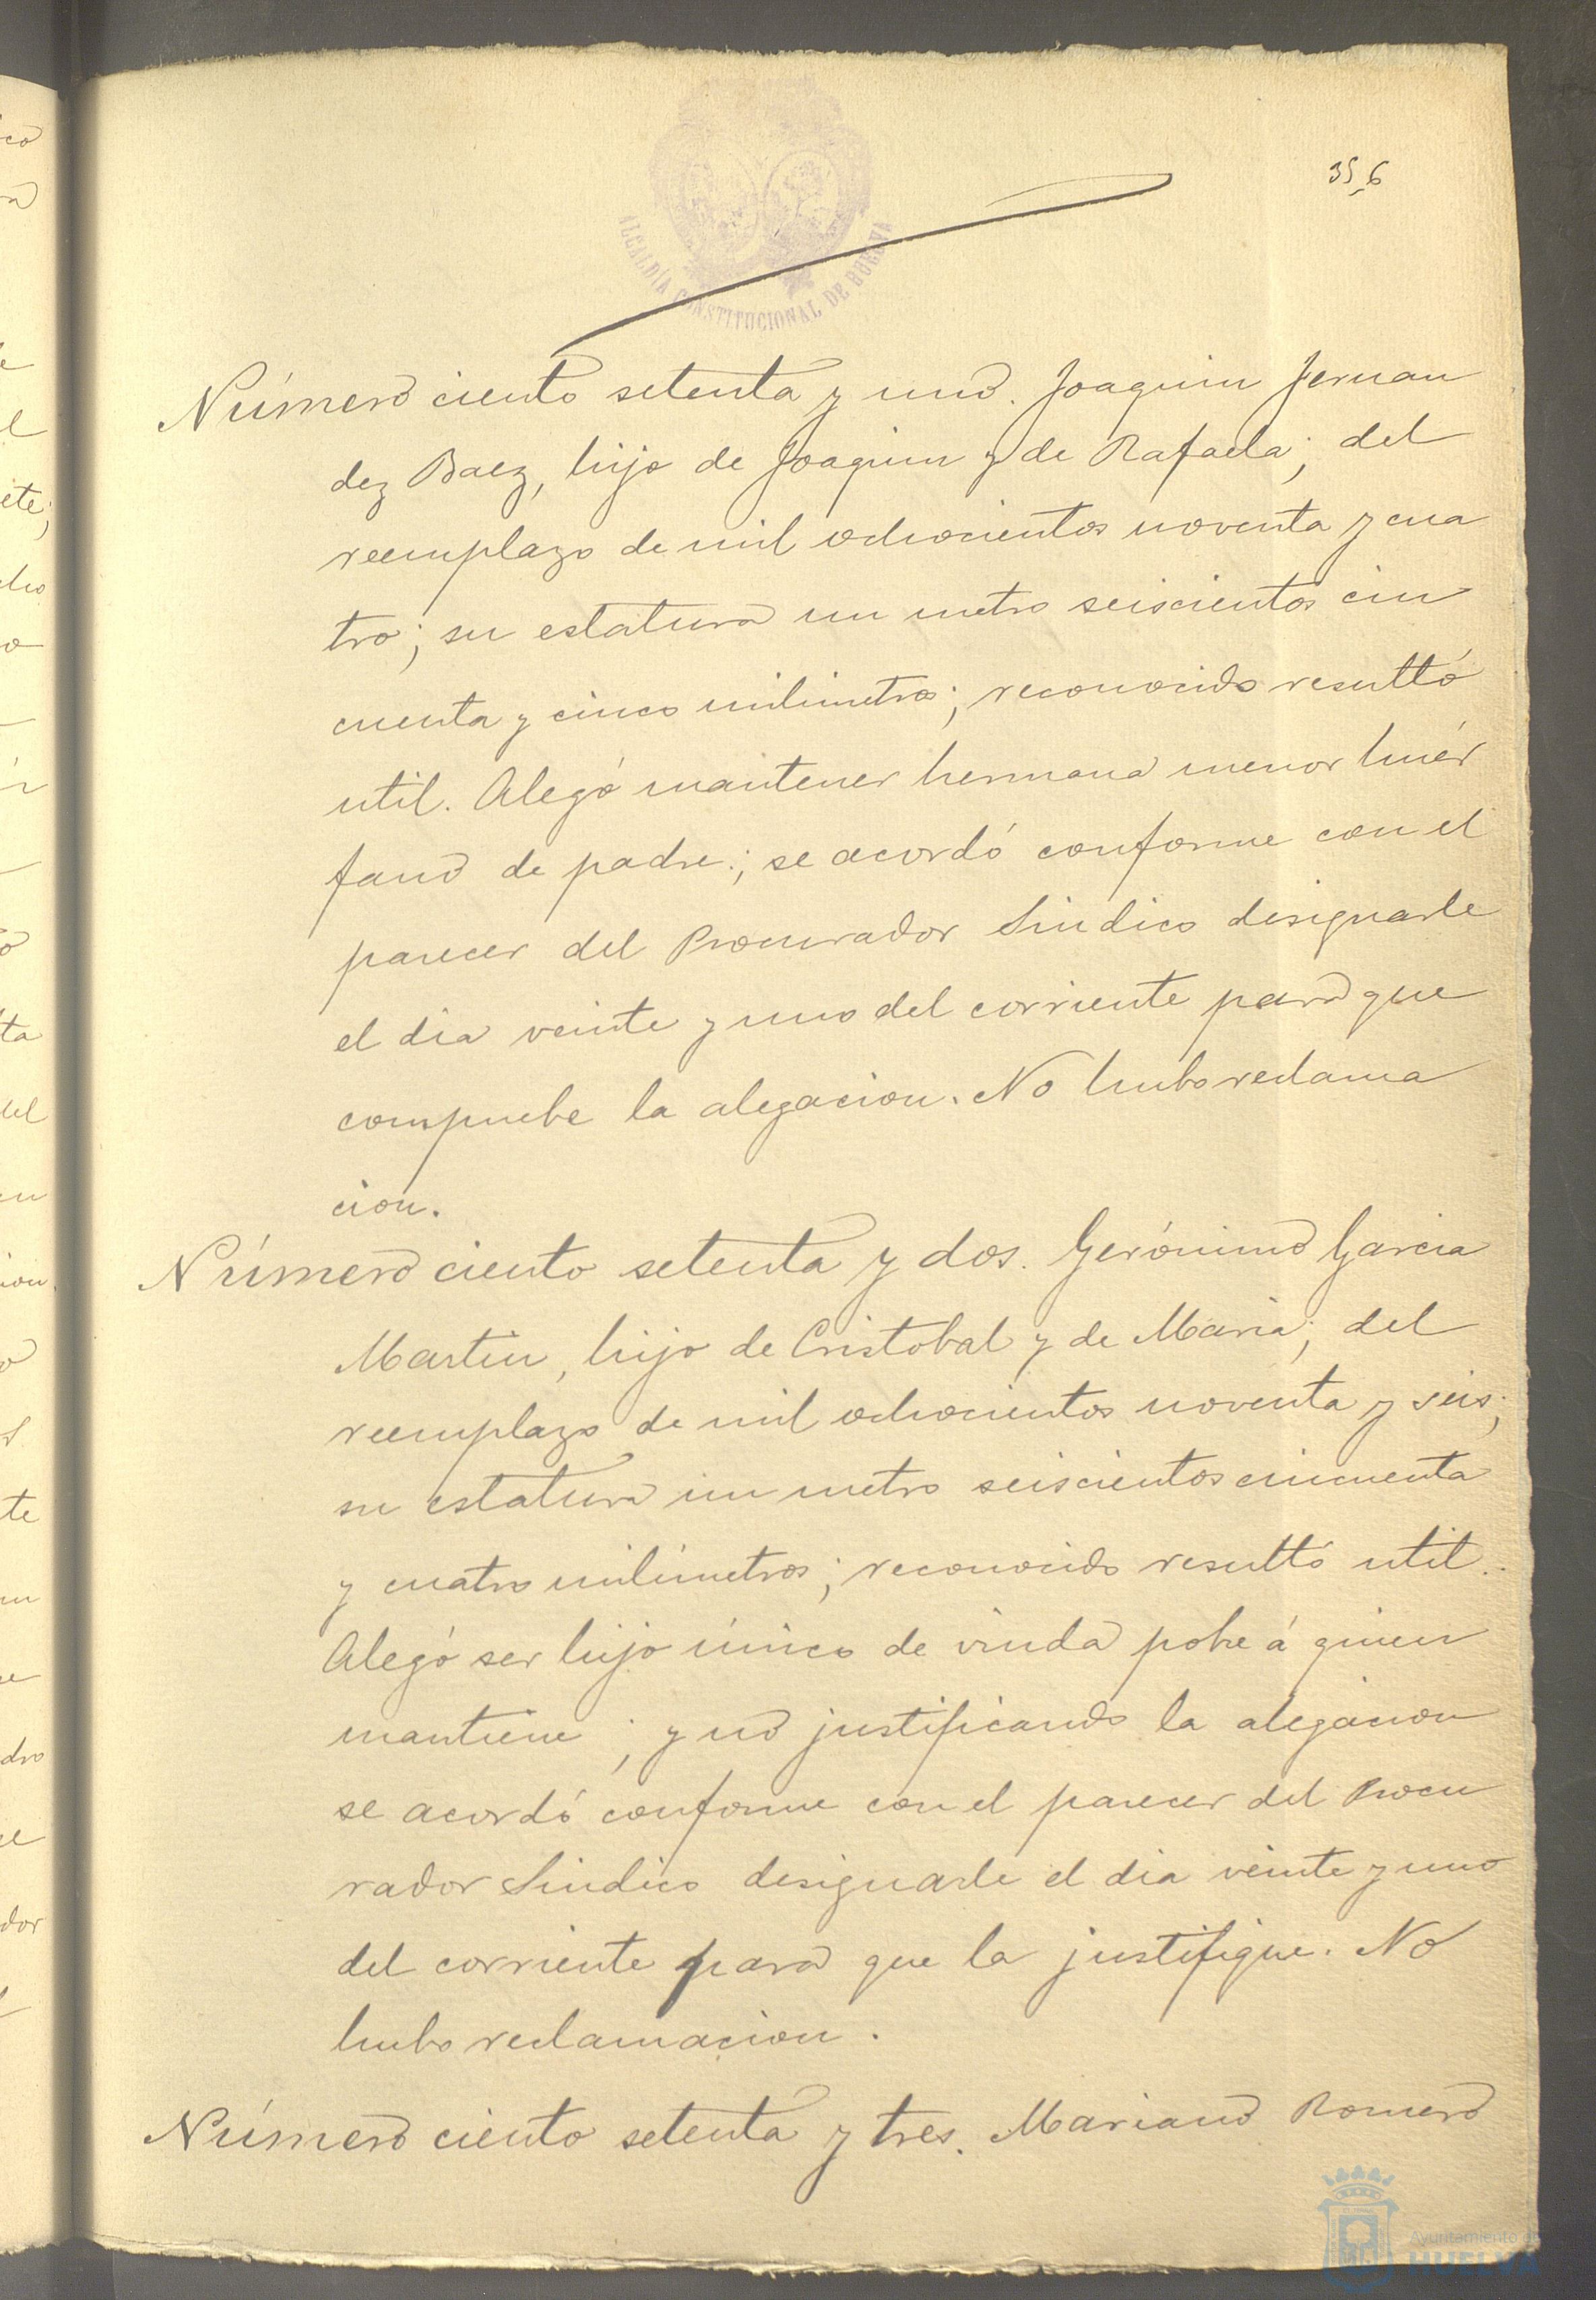 356
ALCALDÍA CONSTITUCIONAL DE HUELVA
Número ciento setenta y uno. Joaquin Fernan
dez Baez, hijo de Joaquin y de Rafaela; del
reemplazo de mil ochocientos noventa y cua
tro; su estatura un metro seiscientos cin
cuenta y cinco milimetros; reconocido resultó
util. Alegó mantener hermana menor huér
fano de padre; se acordó conforme con el
parecer del Procurador Sindico designarle
el dia veinte y uno del corriente para que
compruebe la alegacion. No hubo reclama
cion.
Número ciento setenta y dos. Gerónimo Garcia
Martin, hijo de Cristobal y de Maria; del
reemplazo de mil ochocientos noventa y seis;
su estatura un metro seiscientos cincuenta
y cuatro milímetros; reconocido resultó util.
Alegó ser hijo único de viuda pobre á quien
mantiene; y no justificando la alegacion
se acordó conforme con el parecer del Procu
rador Sindico designarle el dia veinte y uno
del corriente para que la justifique. No
hubo reclamacion.
Número ciento setenta y tres. Mariano Romero
Ayuntamiento de
HUELVA